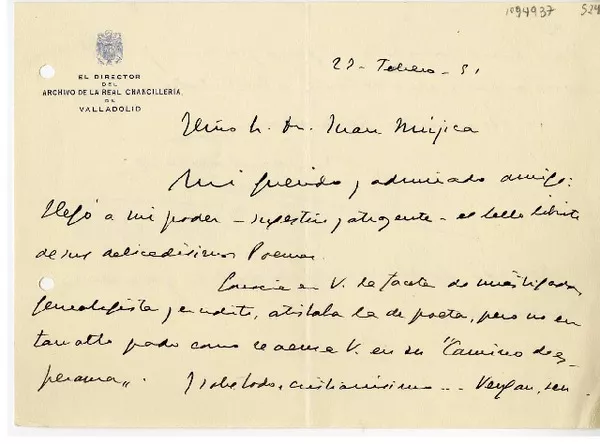 1094937 524
EL DIRECTOR
DEL
ARCHIVO DE LA REAL CHANCILLERÍA
DE
VALLADOLID
27 - Febrero - 51
Ilmo Sr. Dn. Juan Mújica
Mi querido y admirado amigo:
Llegó a mi poder - sugestivo y atrayente - el bello librito
de sus delicadísimos Poemas.
Conocía en V. la faceta de investigador,
genealogista y erudito, atisbaba la de poeta, pero no en
tan alto grado como se acusa V. en su "Camino de es-
peranza". Y sobre todo, cristianísimo ... Vengan, sen